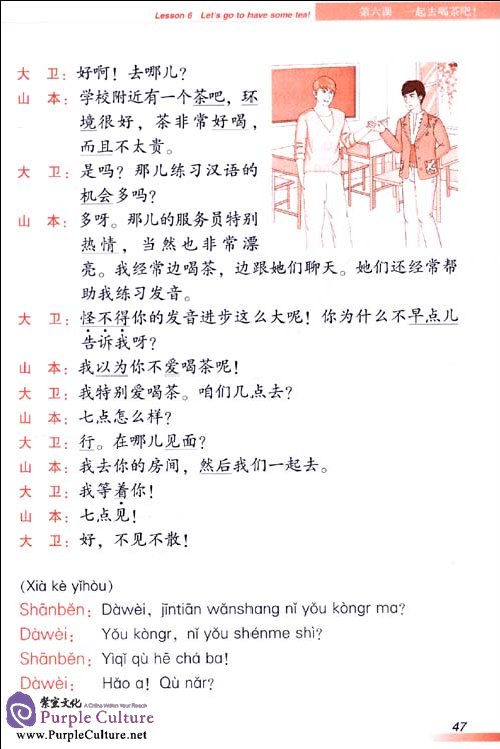 Lesson 6 Let's go to have some tea!
第六课 一起去喝茶吧!
大 卫：好啊！去哪儿？
山 本：学校附近有一个茶吧，环
境很好，茶非常好喝，
而且不太贵。
大 卫：是吗？那儿练习汉语的
机会多吗？
山 本：多呀。那儿的服务员特别
热情，当然也非常漂
亮。我经常边喝茶，边跟她们聊天。她们还经常帮
助我练习发音。
大 卫：怪不得你的发音进步这么大呢！你为什么不早点儿
告诉我呀？
山 本：我以为你不爱喝茶呢！
大 卫：我特别爱喝茶。咱们几点去？
山 本：七点怎么样？
大 卫：行。在哪儿见面？
山 本：我去你的房间，然后我们一起去。
大 卫：我等着你！
山 本：七点见！
大 卫：好，不见不散！
(Xià kè yǐhòu)
Shānběn: Dàwèi, jīntiān wǎnshang nǐ yǒu kòngr ma?
Dàwèi: Yǒu kòngr, nǐ yǒu shénme shì?
Shānběn: Yìqǐ qù hē chá ba!
Dàwèi: Hǎo a! Qù nǎr?
紫宝文化 A China Within Your Reach
Purple Culture
www.PurpleCulture.net
47